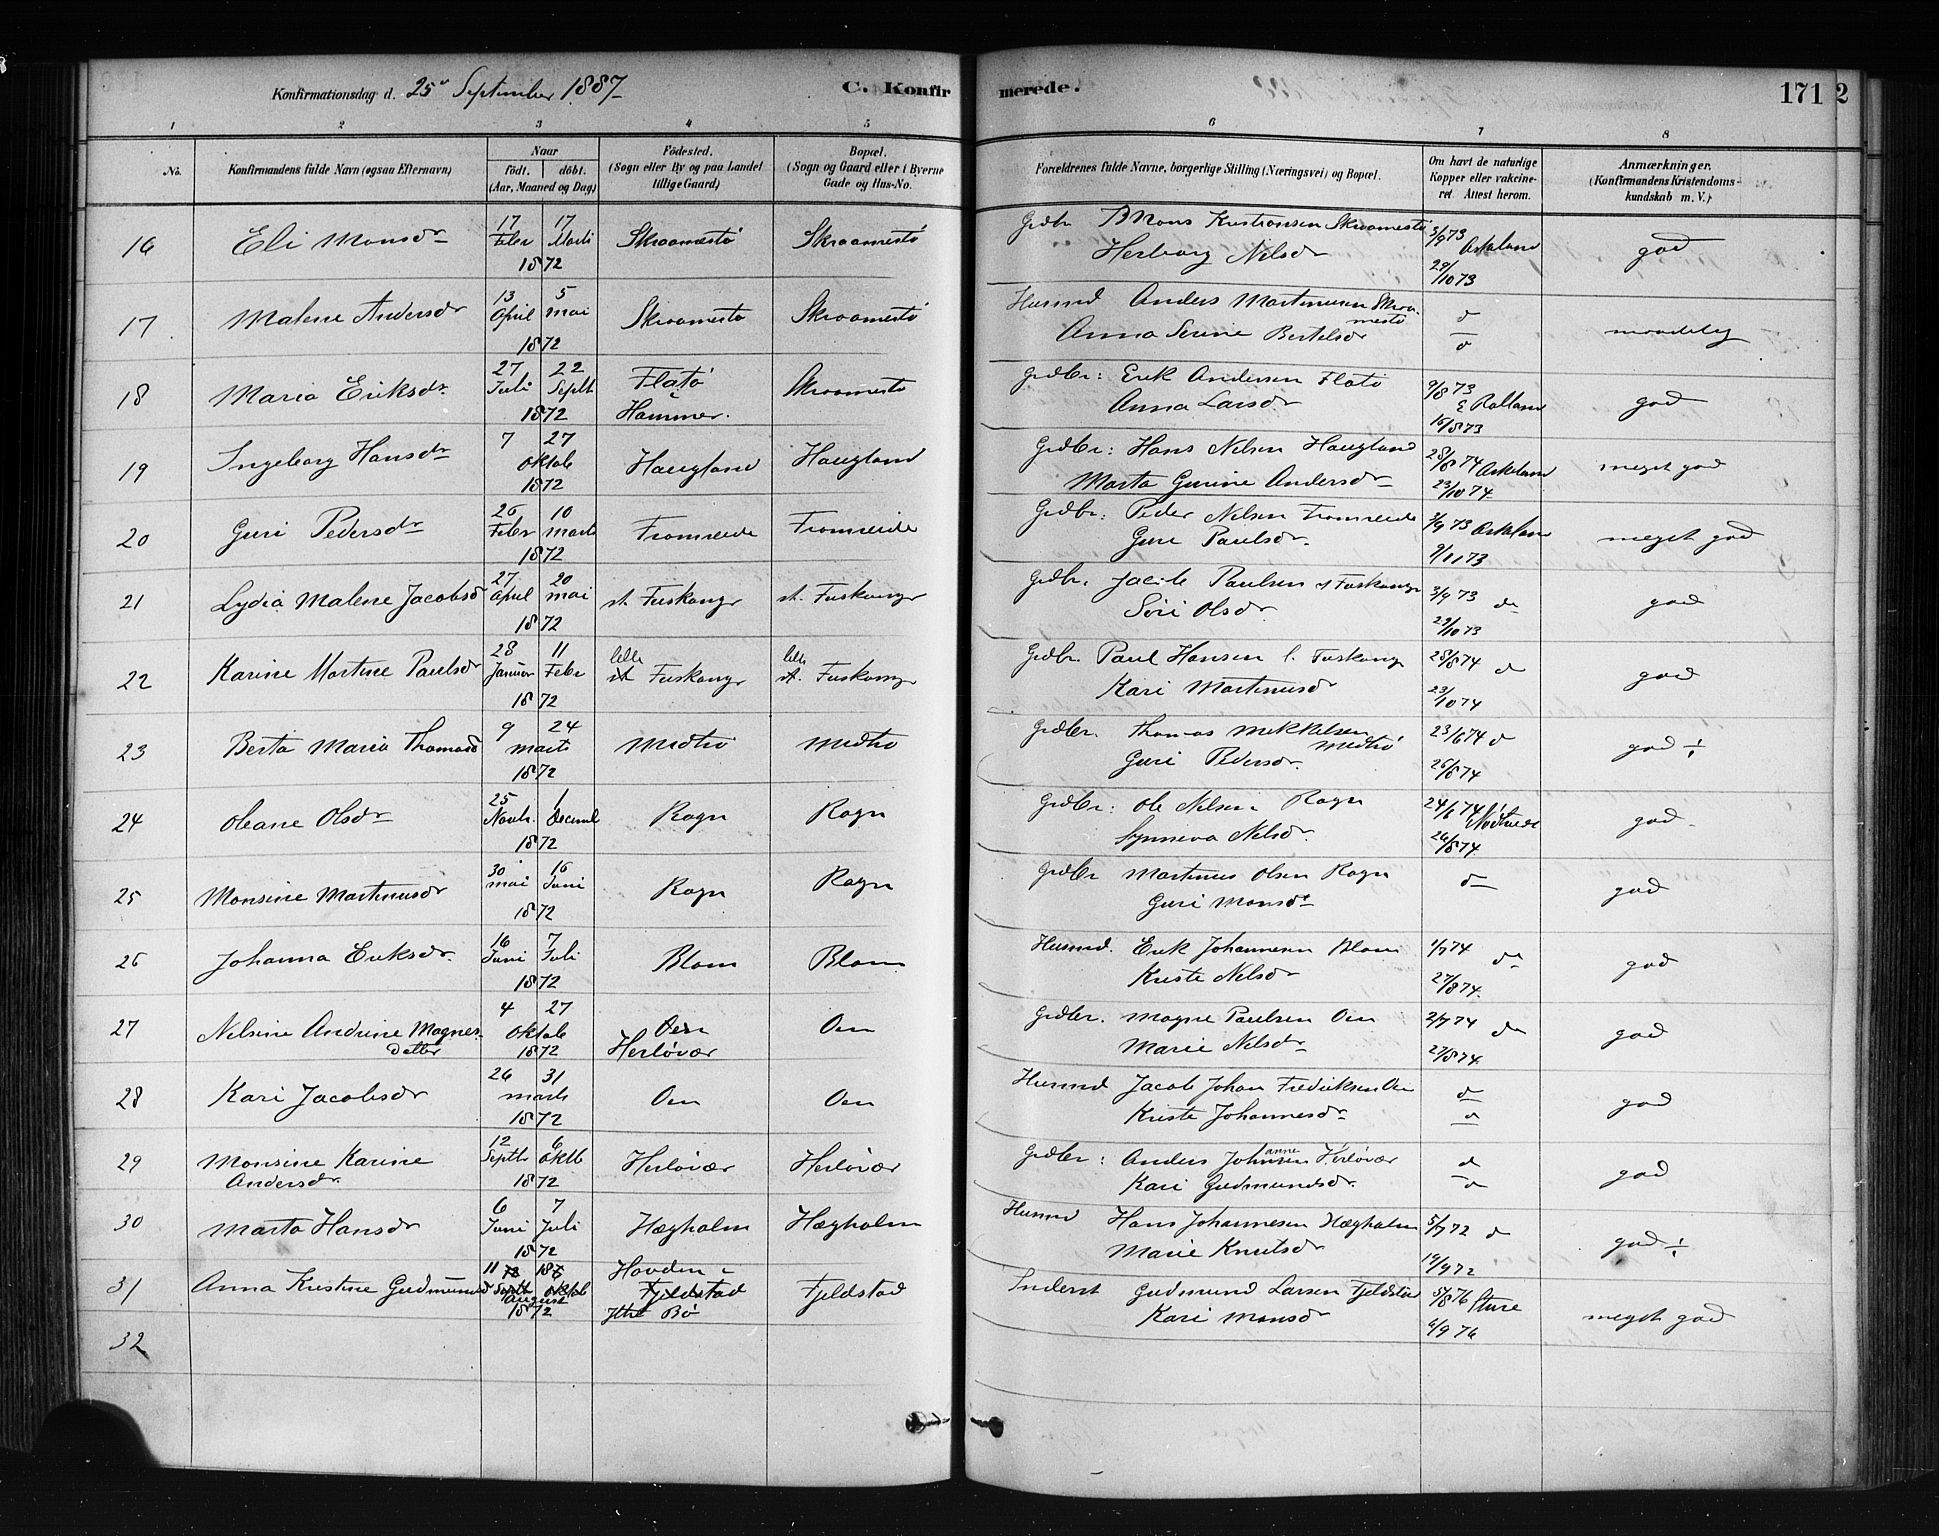 Konfirmationsdag d. 25de September 1887
C. Konfir merede. 171 2
1 2 3 4 5 6 7 8
No. Konfirmandens fulde Navn (ogsaa Efternavn) Naar födt. döbt. (Aar, Maaned og Dag) Födested. (Sogn eller By og paa Landet tillige Gaard) Bopæl. (Sogn og Gaard eller i Byerne Gade og Hus-No.
Forældrenes fulde Navne, borgerlige Stilling (Næringsvei) og Bopæl. Om havt de naturlige Kopper eller vakcineret. Attest herom. Anmærkninger. (Konfirmandens Kristendomskundskab m. V.)
16 Eli Monsdr 17 Febr 17 Marts 1872 Skraamestö Skraamestö Grdbr Mons Kristiansen Skraamestö Herborg Nilsdr 3/9 73 Askeland 29/10 73 god
17 Malene Andersdr 13 April 5 Mai 1872 Skraamestö Skraamestö Husmd Anders Martinusen Skraamestö Anna Serine Bertelsdr d d maadelig
18 Maria Eriksdr 27 Juli 22 Septb 1872 Flatö Hammer. Skraamestö Grdbr: Erik Andersen Flatö Anna Larsdr 9/8 73 E Rolland 16/8 73 god
19 Ingeborg Hansdr 7 27 Oktob 1872 Haugland Haugland Grdbr: Hans Nilsen Haugland Marta Gurine Andersdr 28/8 74 Askeland 23/10 74 meget god
20 Guri Pedersdr 26 Febr 10 Marts 1872 Fromreide Fromreide Grdbr: Peder Nilsen Fromreide Guri Paulsdr 3/9 73 Askeland 9/11 73 meget god
21 Lydia Malene Jacobsd 27 April 20 Mai 1872 st. Fuskanger st. Fuskanger Grdbr. Jacob Paulsen st Fuskanger Siri Olsdr 3/9 73 do 29/10 73 god
22 Karine Martine Paulsdr 28 Januar 11 Febr 1872 lille st Fuskanger lille st. Fuskanger Grdbr. Paul Hansen l. Fuskang Kari Martinusdr 28/8 74 d 23/10 74 god
23 Berta Maria Thomasd 9 24 Marts 1872 Midtö Midtö Grdbr. Thomas Mikkelsen Midtö Guri Pedersdr 23/6 74 d 26/8 74 god ÷
24 Oleane Olsdr 25 Novbr. 1 Decemb 1872 Rogn Rogn Grdbr: Ole Nilsen Rogn Synneva Nilsdr 24/6 74 26/8 74 god
25 Monsine Martinusdr 30 Mai 16 Juni 1872 Rogn Rogn Grdbr Martinus Olsen Rogn Guri Monsdr d god
26 Johanna Eriksdr 16 Juni 7 Juli 1872 Blom Blom Husmd. Erik Johannesen Blom Kriste Nilsdr 1/7 74 do 27/8 74 god
27 Nilsine Andrine Magnesdatter 4 27 Oktob 1872 Oen Herlövær Oen Grdbr. Magne Paulsen Oen Marie Nilsdr 2/7 74 do 27/8 74 god
28 Kari Jacobsdr 26 31 Marts 1872 Oen Oen Husmd Jacob Johan Fredriksen Oen Kriste Johannesdr d d god
29 Monsine Karine Andersdr 12 Septb 6 Oktb 1872 Herlövær Herlövær Grdbr: Anders Johannesen Herlövær Kari Gudmundsdr d d god
30 Marta Hansdr 6 Juni 7 Juli 1872 Hægholm Hægholm Husmd Hans Johannesen Hægholm Marie Knutsdr 5/7 72 d 19/9 72 god ÷
31 Anna Kristine Gudmundsd 11 18 Septb Oktob August 1872 Hovden i Fjeldstad Ytre Bö Fjeldstad Inderst Gudmund Larsen Fjeldstad Kari Monsdr 5/8 76 Sture 6/9 76 meget god
32